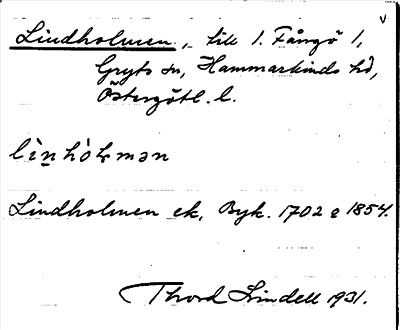 v
Lindholmen, till 1. Fångö 1,
Gryts sn, Hammarkinds hd,
Östergötl. l.
lìn̠hòɫmən
Lindholmen ek. Byk. 1702 o 1854.
Thord Lindell 1931.